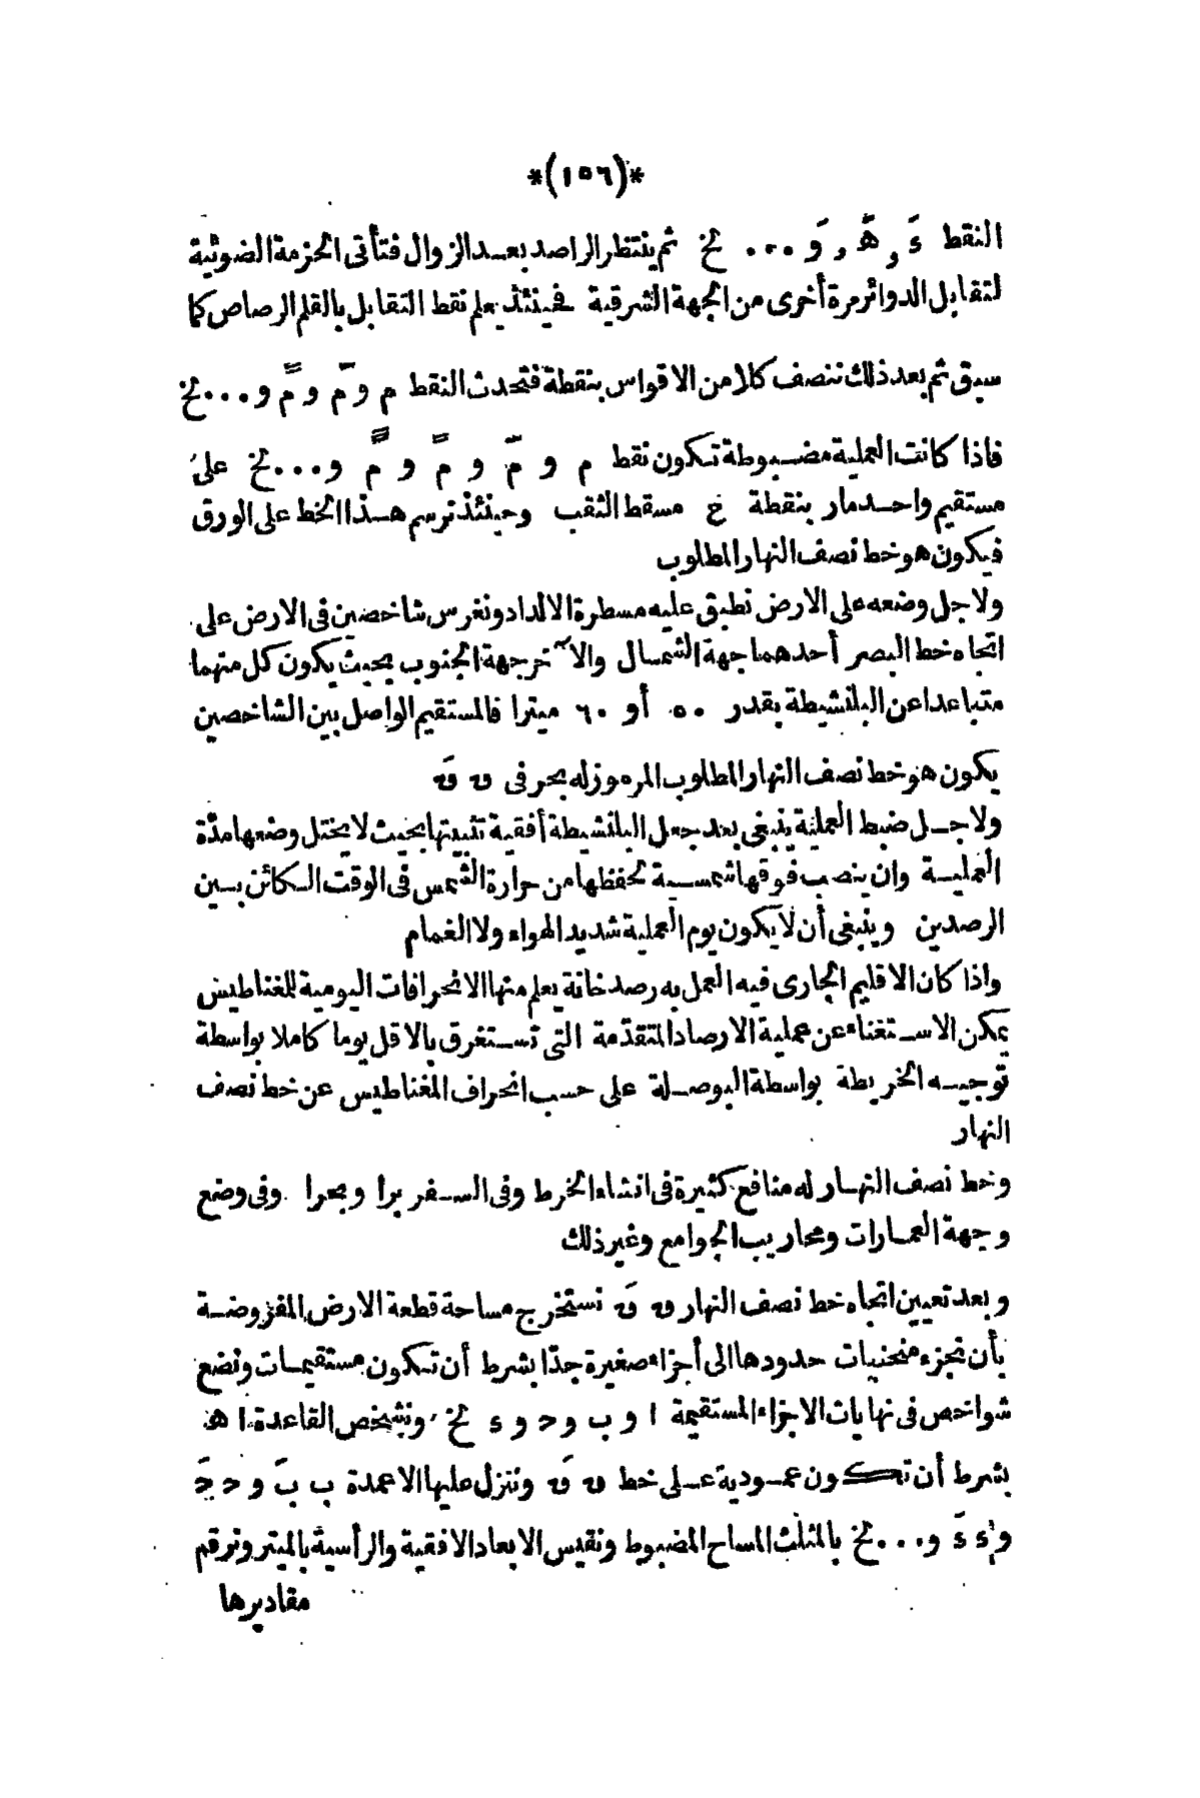 *(١٥٦)*
النقط ءَ و هَّ و وَ ... لخ ثم ينتظر الراصد بعد الزوال فتأتى الحزمة الضوئية
لتقابل الدوائر مرة أخرى من الجهة الشرقية فحينئذ يعلم نقط التقابل بالقلم الرصاص كما
سبق ثم بعد ذلك ننصف كلا من الاقواس بنقطة فتحدث النقط م و م و م و م و ... لخ
فاذا كانت العملية مضبوطة تكون نقط م و م و م و م و ... لخ على
مستقيم واحد مار بنقطة خ مسقط الثقب وحينئذ نرسم هذا الخط على الورق
فيكون هو خط نصف النهار المطلوب
ولاجل وضعه على الارض نطبق عليه مسطرة الالداد ونغرس شاخصين فى الارض على
اتجاه خط البصر أحدهما جهة الشمال والآخر جهة الجنوب بحيث يكون كل منهما
متباعدا عن البلنشيطة بقدر ٥٠ أو ٦٠ ميترا فالمستقيم الواصل بين الشاخصين
يكون هو خط نصف النهار المطلوب المرموز له بحرفى ں قَ
ولاجل ضبط العملية ينبغى بعد جعل البلنشيطة أفقية تثبيتها بحيث لا يختل وضعها مدّة
العملية وان ينصب فوقها شمسية تحفظها من حرارة الشمس فى الوقت الكائن بين
الرصدين وينبغى أن لا يكون يوم العملية شديد الهواء ولا الغمام
واذا كان الاقليم الجارى فيه العمل به رصدخانة يعلم منها الانحرافات اليومية للمغناطيس
يمكن الاستغناء عن عملية الارصاد المتقدّمة التى تستغرق بالاقل يوما كاملا بواسطة
توجيه الخريطة بواسطة البوصلة على حسب انحراف المغناطيس عن خط نصف
النهار
وخط نصف النهار له منافع كثيرة فى انشاء الخرط وفى السفر برا وبحرا وفى وضع
وجهة العمارات ومحاريب الجوامع وغير ذلك
وبعد تعيين اتجاه خط نصف النهار ں قَ نستخرج مساحة قطعة الارض المفروضة
بأن نجزء منحنيات حدودها الى أجزاء صغيرة جدّا بشرط أن تكون مستقيمات ونضع
شواخص فى نهايات الاجزاء المستقيمة ا و ب و ح و ء لخ ونشخص القاعدة ا هـ
بشرط أن تكون عمودية على خط ں قَ وننزل عليها الاعمدة ب بَ و ح حَ
و ء ءَ و ... لخ بالمثلث المساح المضبوط ونقيس الابعاد الافقية والرأسية بالميتر ونرقم
مقاديرها